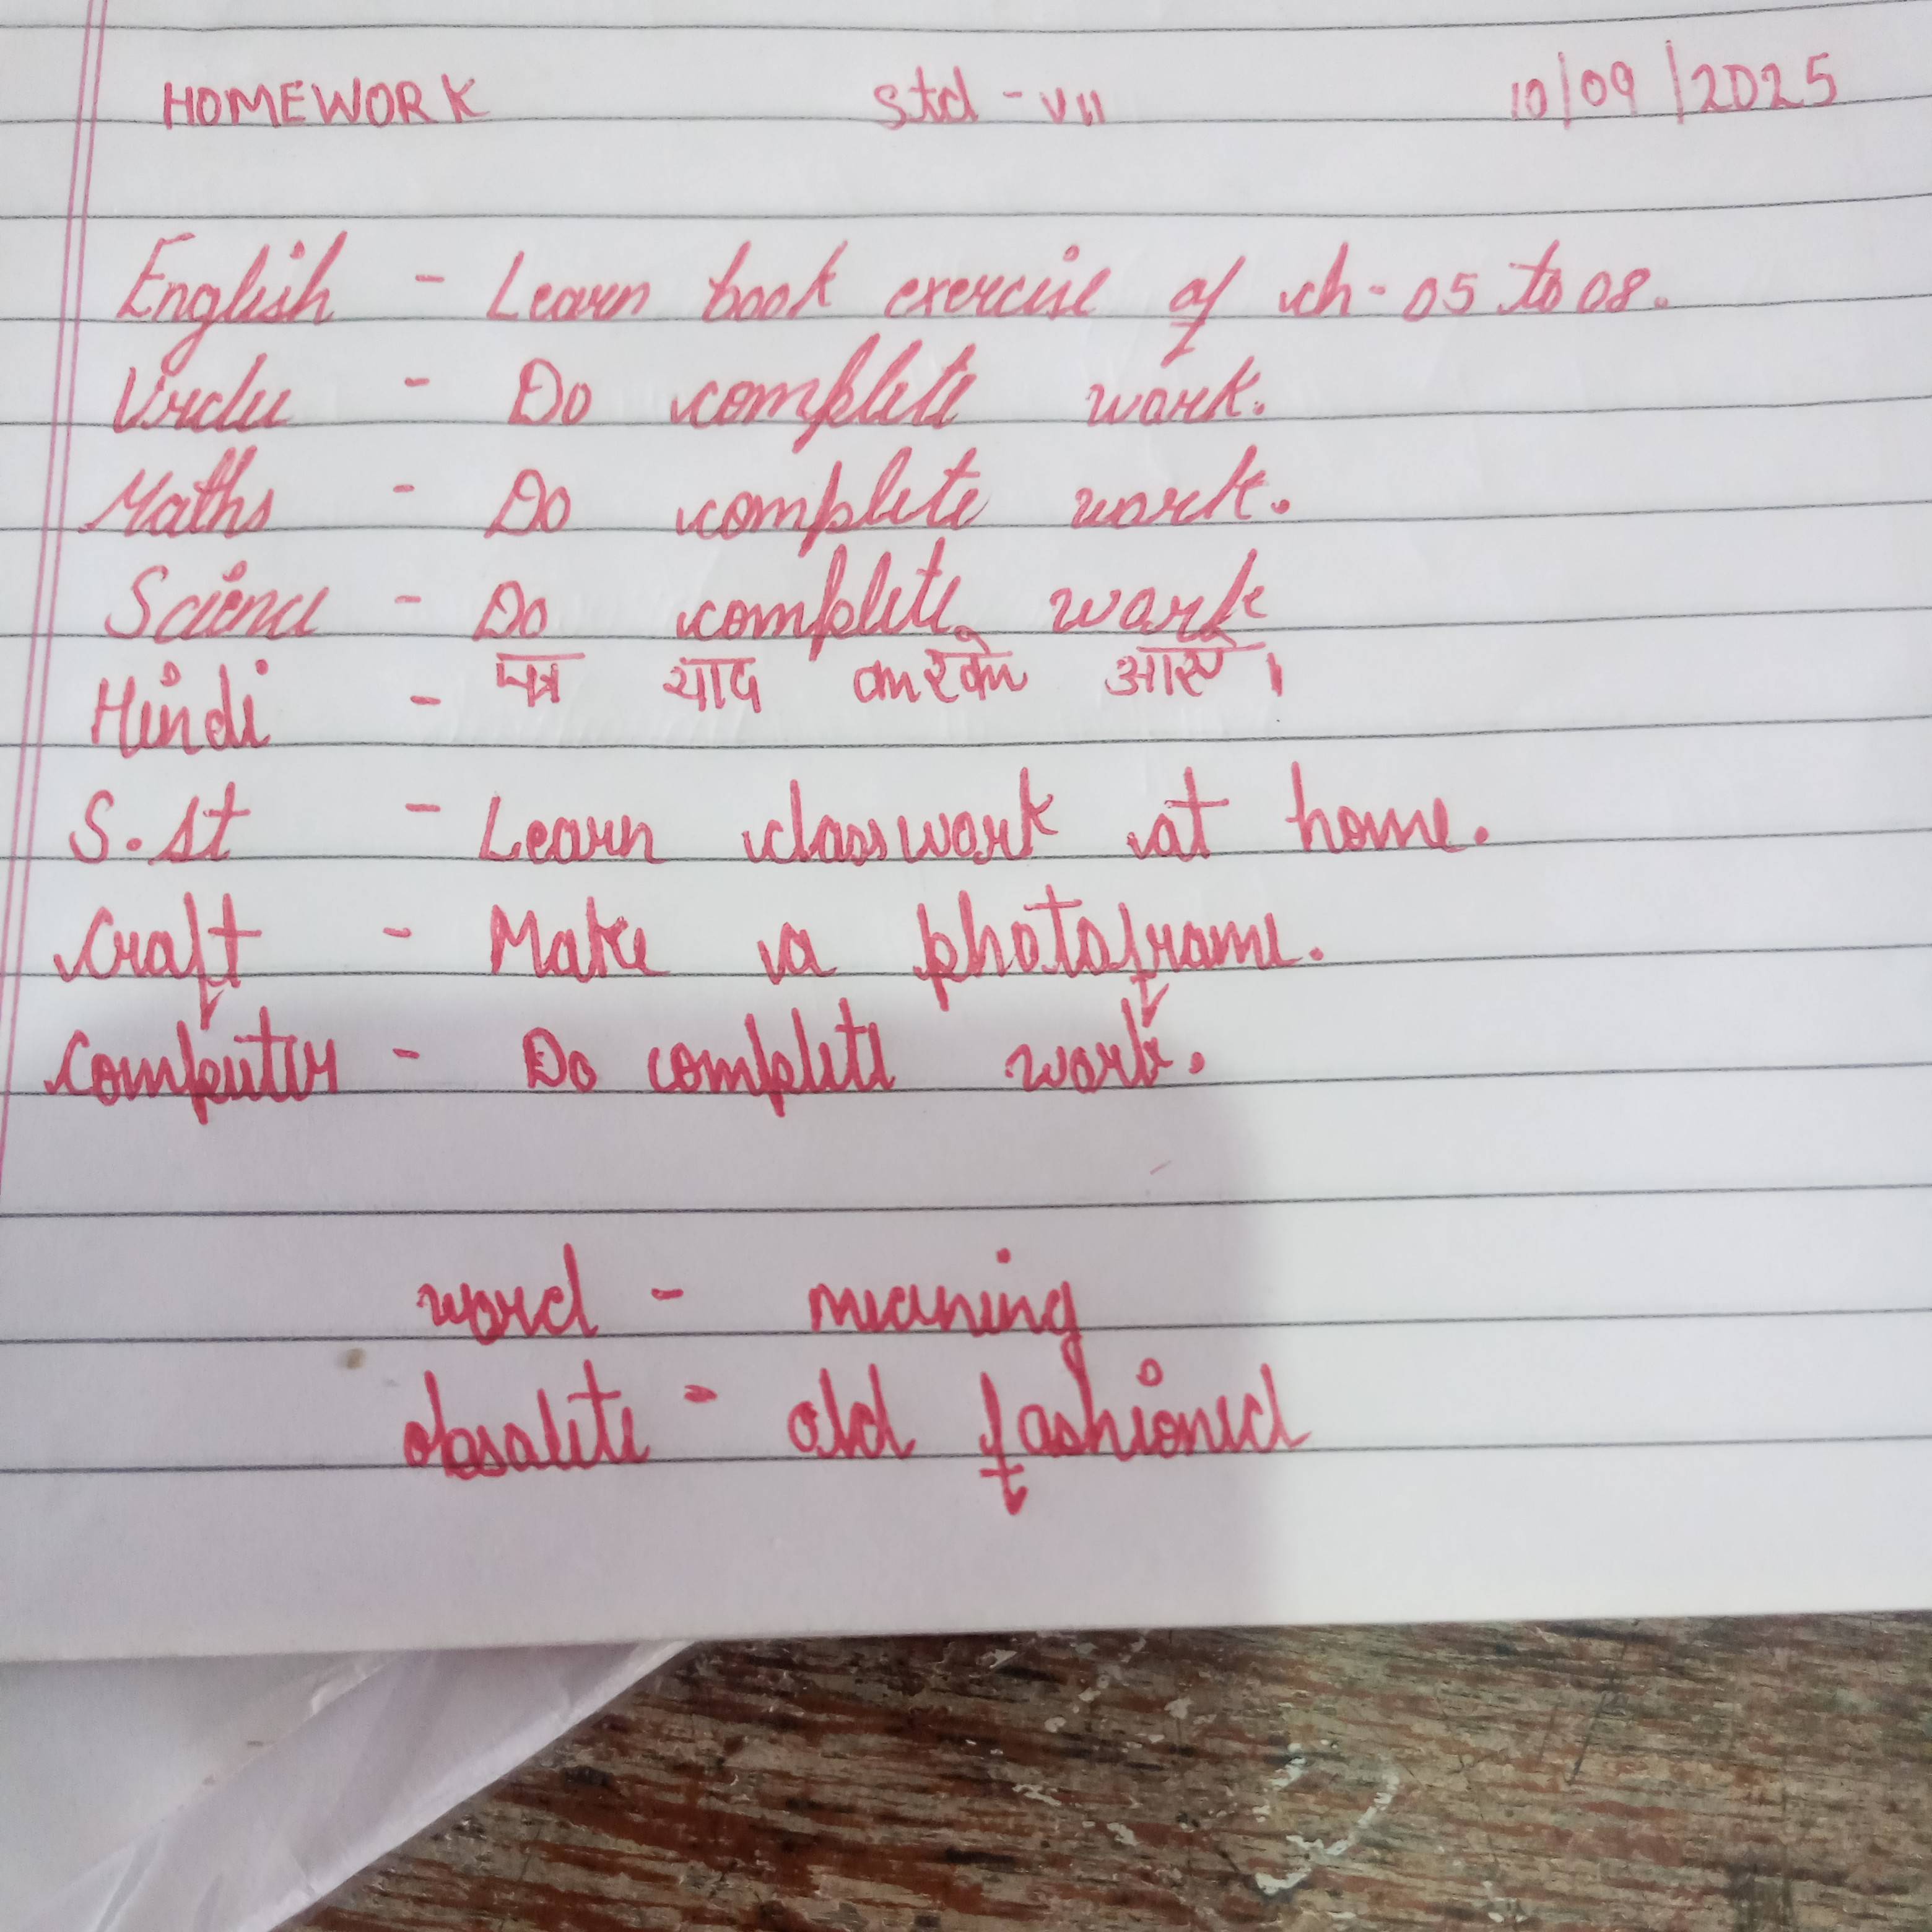 HOMEWORK Std - VII 10/09/2025
English - Learn book exercise of ch - 05 to 08.
Urdu - Do complete work.
Maths - Do complete work.
Science - Do complete work
Hindi - पत्र याद करके आए ।
S.st - Learn classwork at home.
Craft - Make a photoframe.
Computer - Do complete work.
word - meaning
obsalete - old fashioned